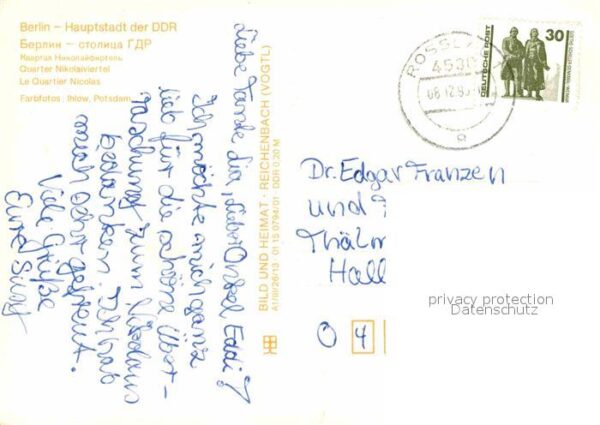 Berlin – Hauptstadt der DDR
Берлин – столица ГДР
Квартал Николайфиртель
Quarter Nikolaiviertel
Le Quartier Nicolas
Farbfotos: Ihlow, Potsdam
Liebe Tante Lia, lieber Onkel Eddi!
Ich möchte mich ganz
lieb für die schöne Über-
raschung zum Nikolaus
bedanken. Ich hab
mich sehr gefreut.
Viele Grüße
Eure
BILD UND HEIMAT · REICHENBACH (VOGTL)
A1/III/26/13 01 15 0794/01 DDR 0,20 M
4530
DEUTSCHE POST
30
Dr. Edgar Franzen
und
Hall
O 4
privacy protection
Datenschutz